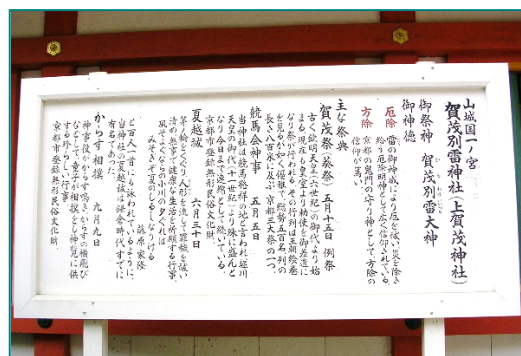 山城国一ノ宮
賀茂別雷神社(上賀茂神社)
御祭神 賀茂別雷大神
御神徳
厄除 雷の御神威により厄を祓い災を除き
給う厄除明神として広く信仰されている。
方除 京都の鬼門の守り神として、方除の
信仰が篤い。
主な祭典
賀茂祭(葵祭) 五月十五日 例祭
古く欽明天皇(六世紀)の御代より始
まる。現在も皇室より勅使を御差遣に
なり祭が行われる。その行列は王朝絵巻
を見るが如く優雅で、総勢五百名、列の
長さ八百米に及ぶ。京都三大祭の一つ。
競馬会神事 五月五日
当神社は競馬発祥の地と言われ、堀川
天皇の御代(十一世紀)より殊に盛んと
なり今日まで連綿として続いている。
京都市登録無形民俗文化財
夏越祓 六月三十日
茅の輪をくぐり、人形を流して罪穢を祓い
清め無事で健康な生活を祈願する行事。
風そよぐならの小川の夕ぐれは
みそぎぞ夏のしるしなりける
藤原家隆
と百人一首にも詠われているように、
当神社の夏越祓は鎌倉時代すでに
有名であった。
からす相撲 九月九日
神事役がからすの鳴き、からすの横飛び
などをして、童子が相撲をとし神覧に供
する珍らしい行事。
京都市登録無形民俗文化財